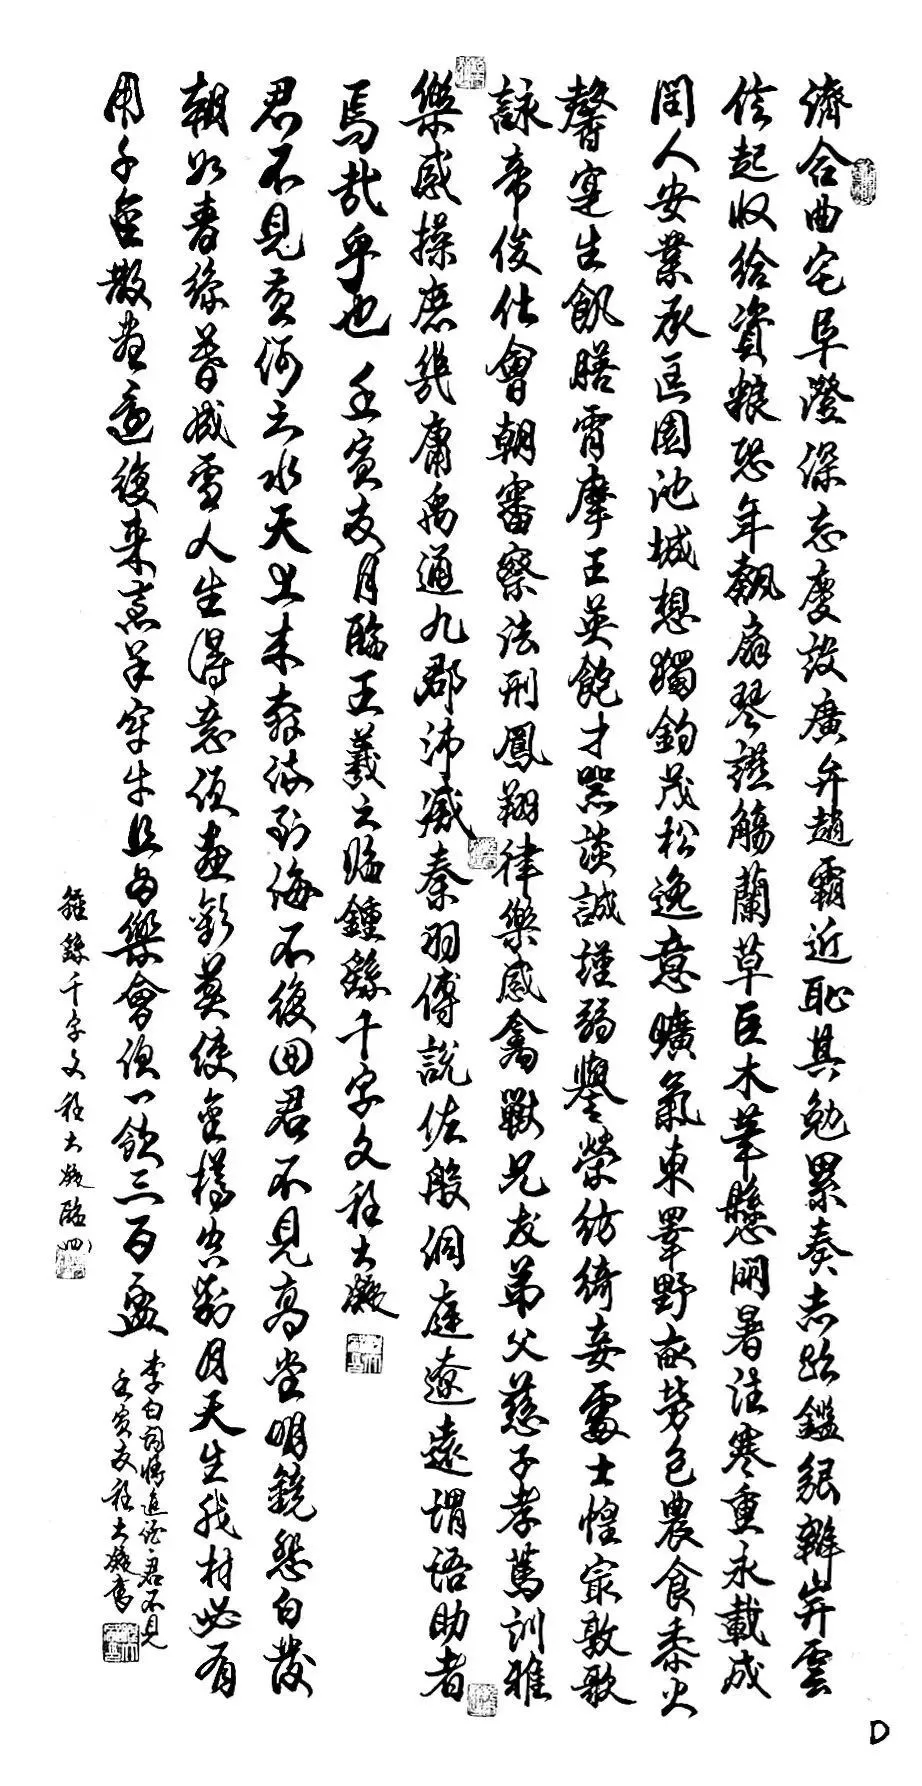 濟合曲宅阜瀅保忘慶設廣弁趙霸近恥其勉累奏志鑑貌辨笄雲
俠起收給資粮恐年飆扇琴讌觴蘭草巨木華懸朗暑注寒重永載成
閏人安業承匡園池城想獨鈞茂松逸意曠氣東睪野畝勞色農食黍火
馨寔生飢膳霄摩王英飽才器談誠謹弱譽榮紡綺妾處士惶寂敦歌
詠帝俊仕會朝審察法刑鳳翔律樂感禽獸兄友弟父慈子孝篤訓雅
樂感操慮幾庸禹通九郡沛臧秦羽傅說佐殷洞庭遼遠謂語助者
焉哉乎也 壬寅友月臨王羲之臨鍾繇千字文程大凝
君不見黃河之水天上来奔流到海不復回君不見高堂明鏡悲白发
朝如青絲暮成雪人生得意須盡歡莫使金樽空對月天生我材必有
用千金散盡還復来烹羊宰牛且為樂會須一飲三百盃
李白詞將進酒君不見
壬寅友程大凝書
鍾繇千字文程大凝臨四
D